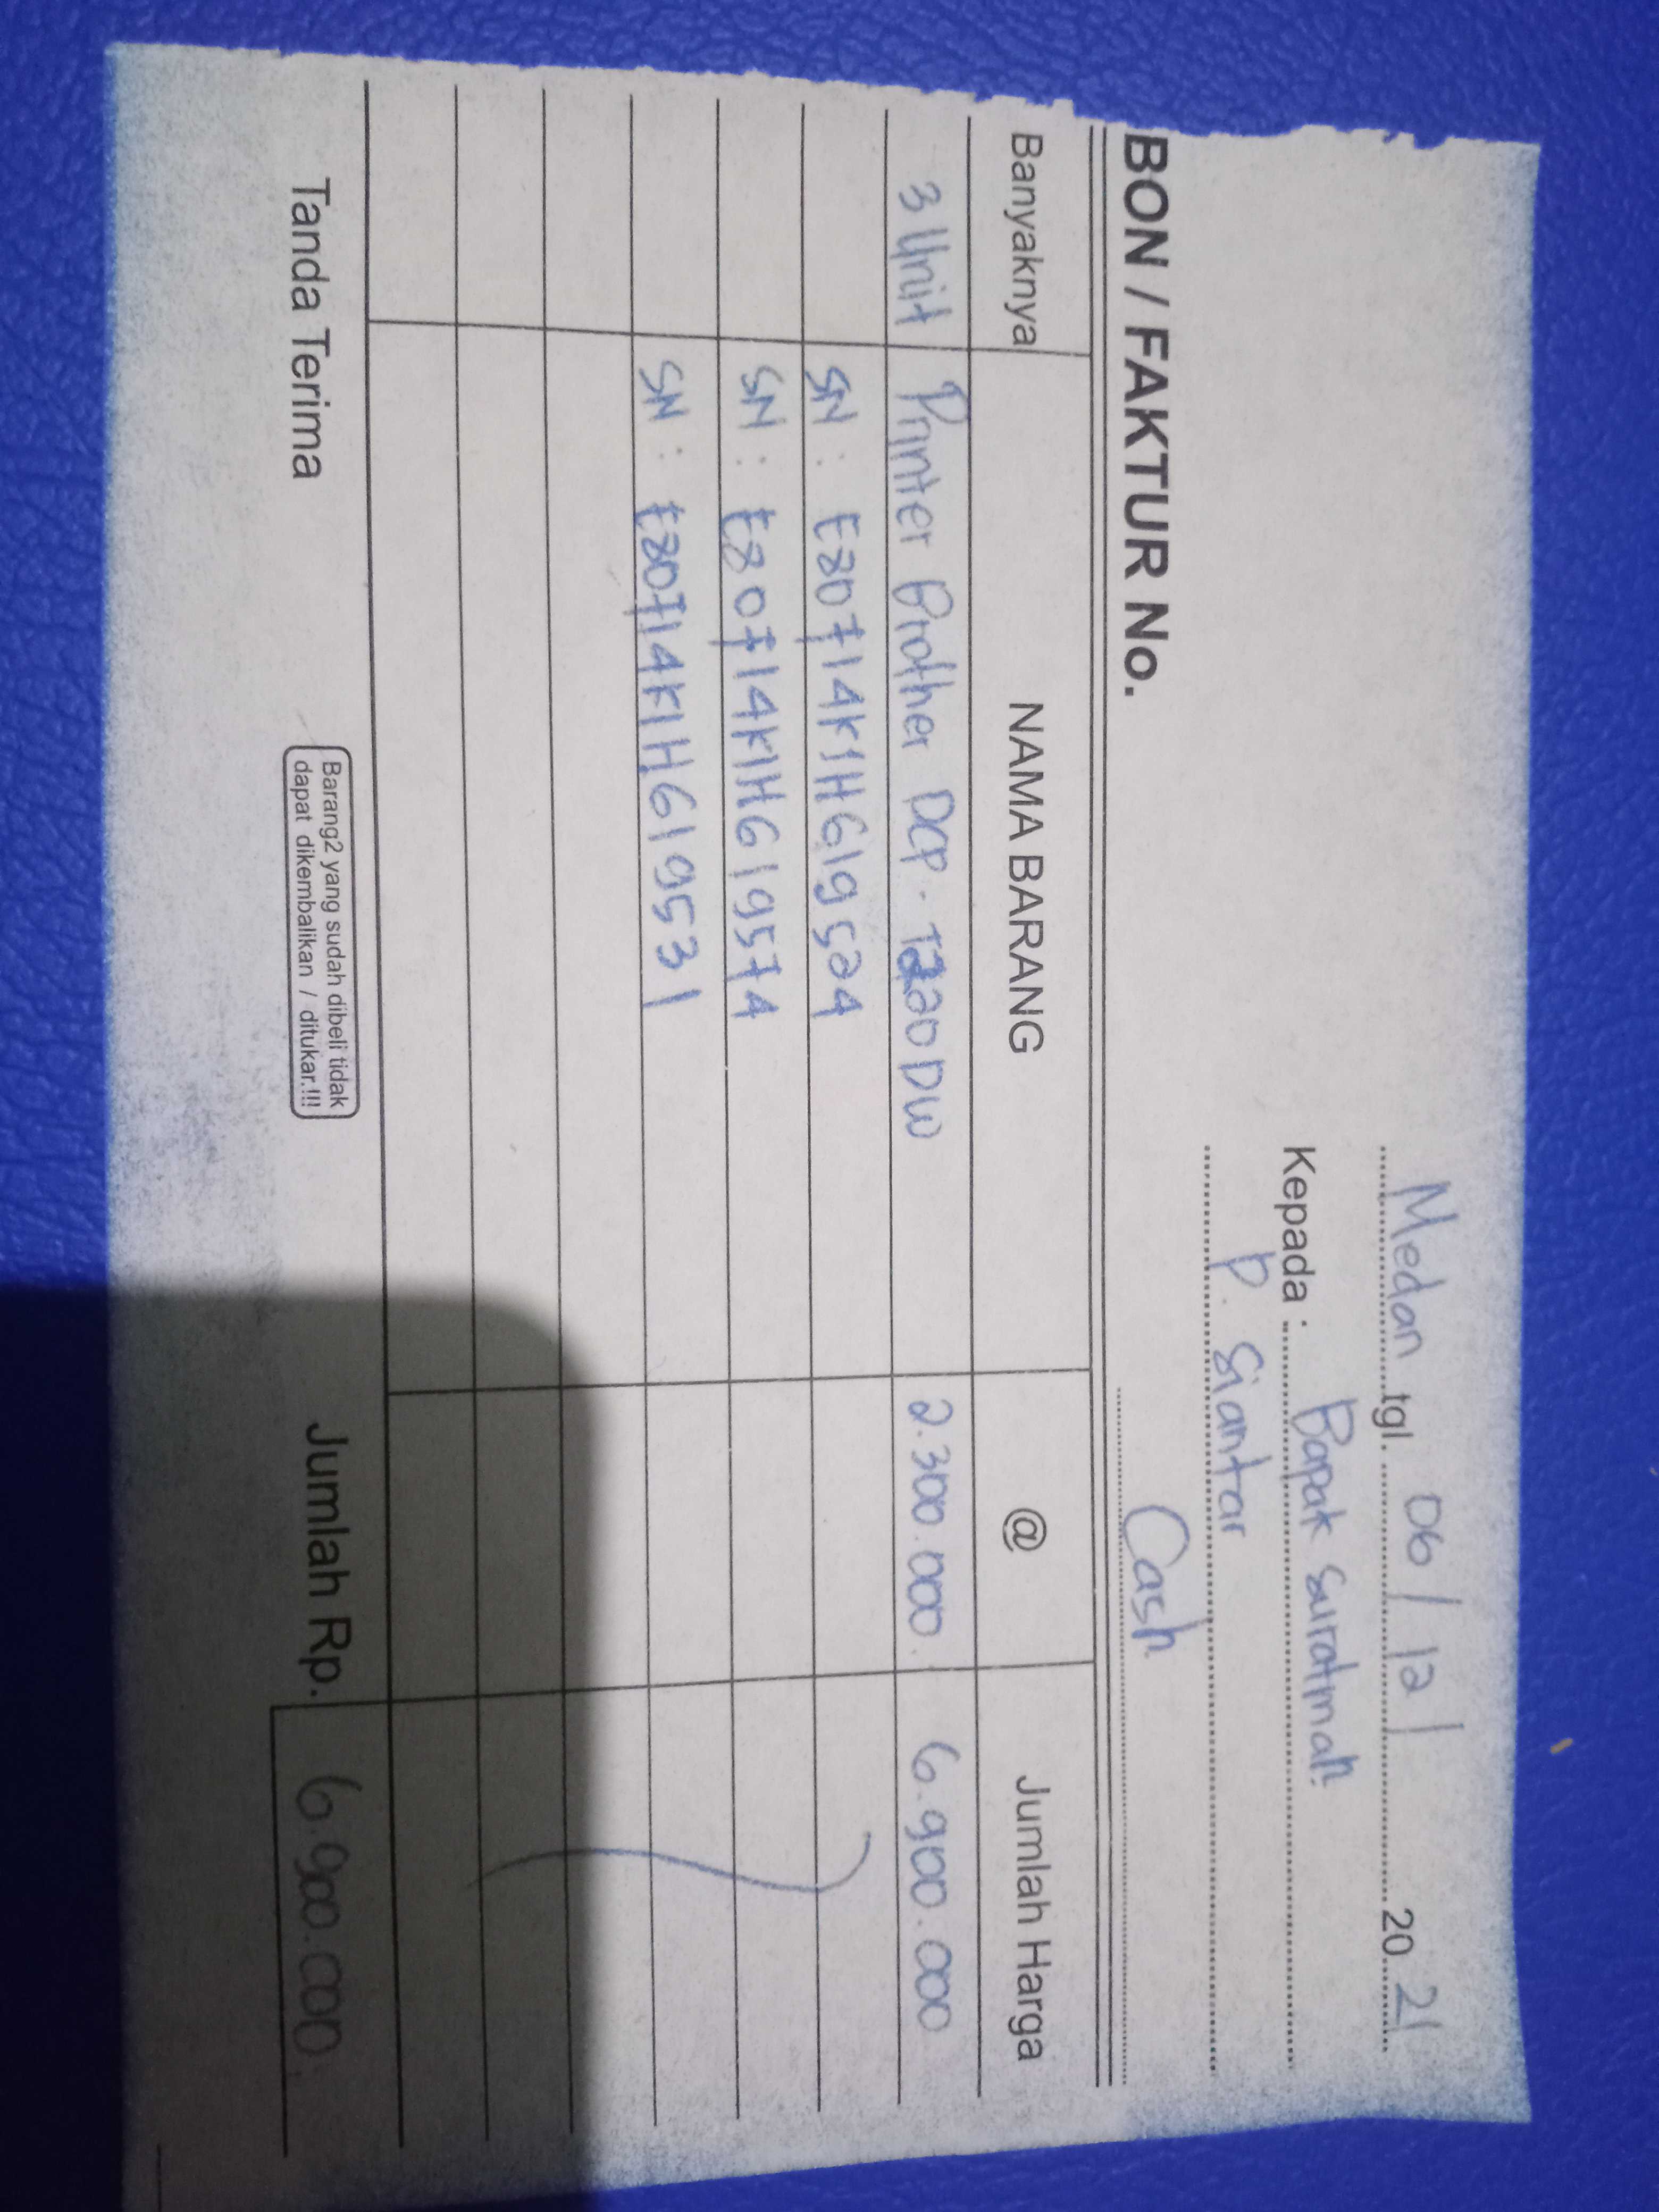 Medan tgl. 06/12/ 2021
Kepada : Bapak Suratmah.
P. Siantar
BON / FAKTUR No. Cash
Banyaknya NAMA BARANG @ Jumlah Harga
3 Unit Printer Brother DCP. T220DW 2.300.000. 6.900.000
SN : E80714K1H619524
SN : E80714K1H619574
SN : E80714K1H619531
Tanda Terima
Barang2 yang sudah dibeli tidak
dapat dikembalikan / ditukar.!!!
Jumlah Rp. 6.900.000.